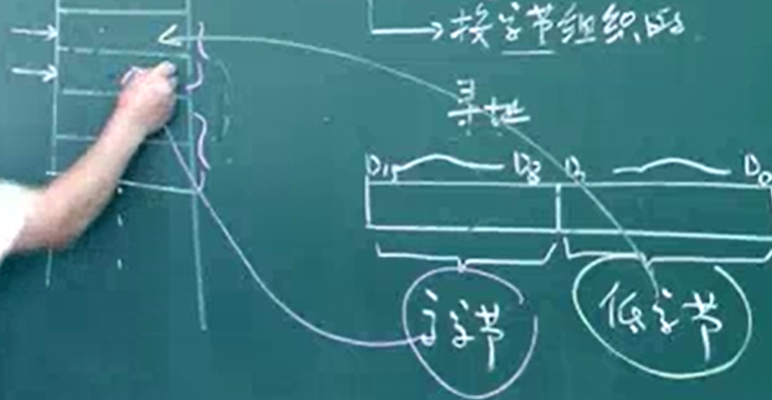 →按字节组织的.
寻址
D₁₅ D₈ D₇ D₀
高字节 低字节